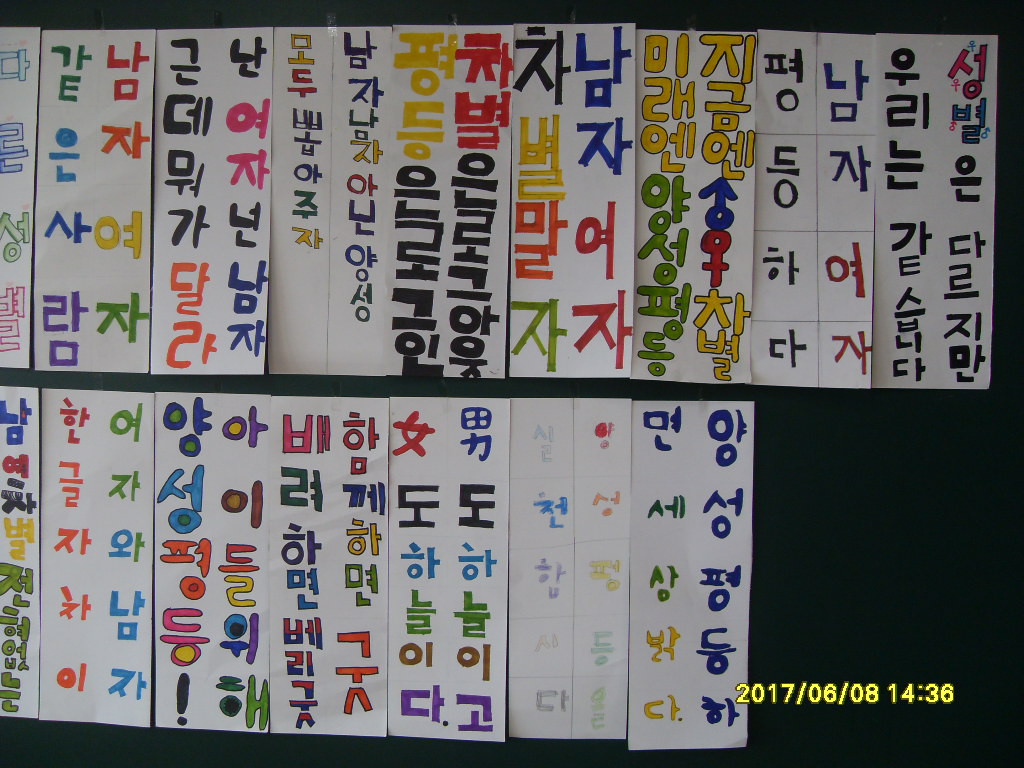 다른성별
남자여자
같은사람
난여자넌남자
근데뭐가달라
남자남차아닌양성
모두뽑아주자
차별은로그아웃
평등은로그인
남자여자
차별말자
지금엔♂♀차별
미래엔양성평등
남자여자
평등하다
성별은다르지만
우리는같습니다
남여차별전혀없는
여자와남자
한글자차이
아이들위해
양성평등!
함께하면굿
배려하면베리굿
男도하늘이고
女도하늘이다.
양성평등을
실천합시다
양성평등하
면세상밝다.
2017/06/08 14:36